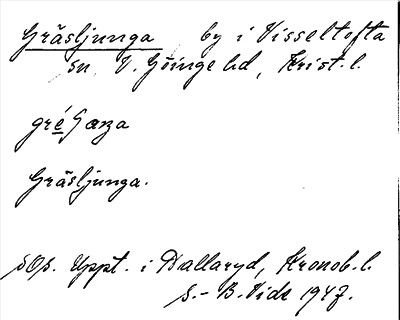 Gräsljunga by i Visseltofta
sn, V. Göinge hd, Krist. l.
Gräsljunga.
SOp. Uppt. i Pallaryd, Kronob. l.
S.-B. Vide 1947.